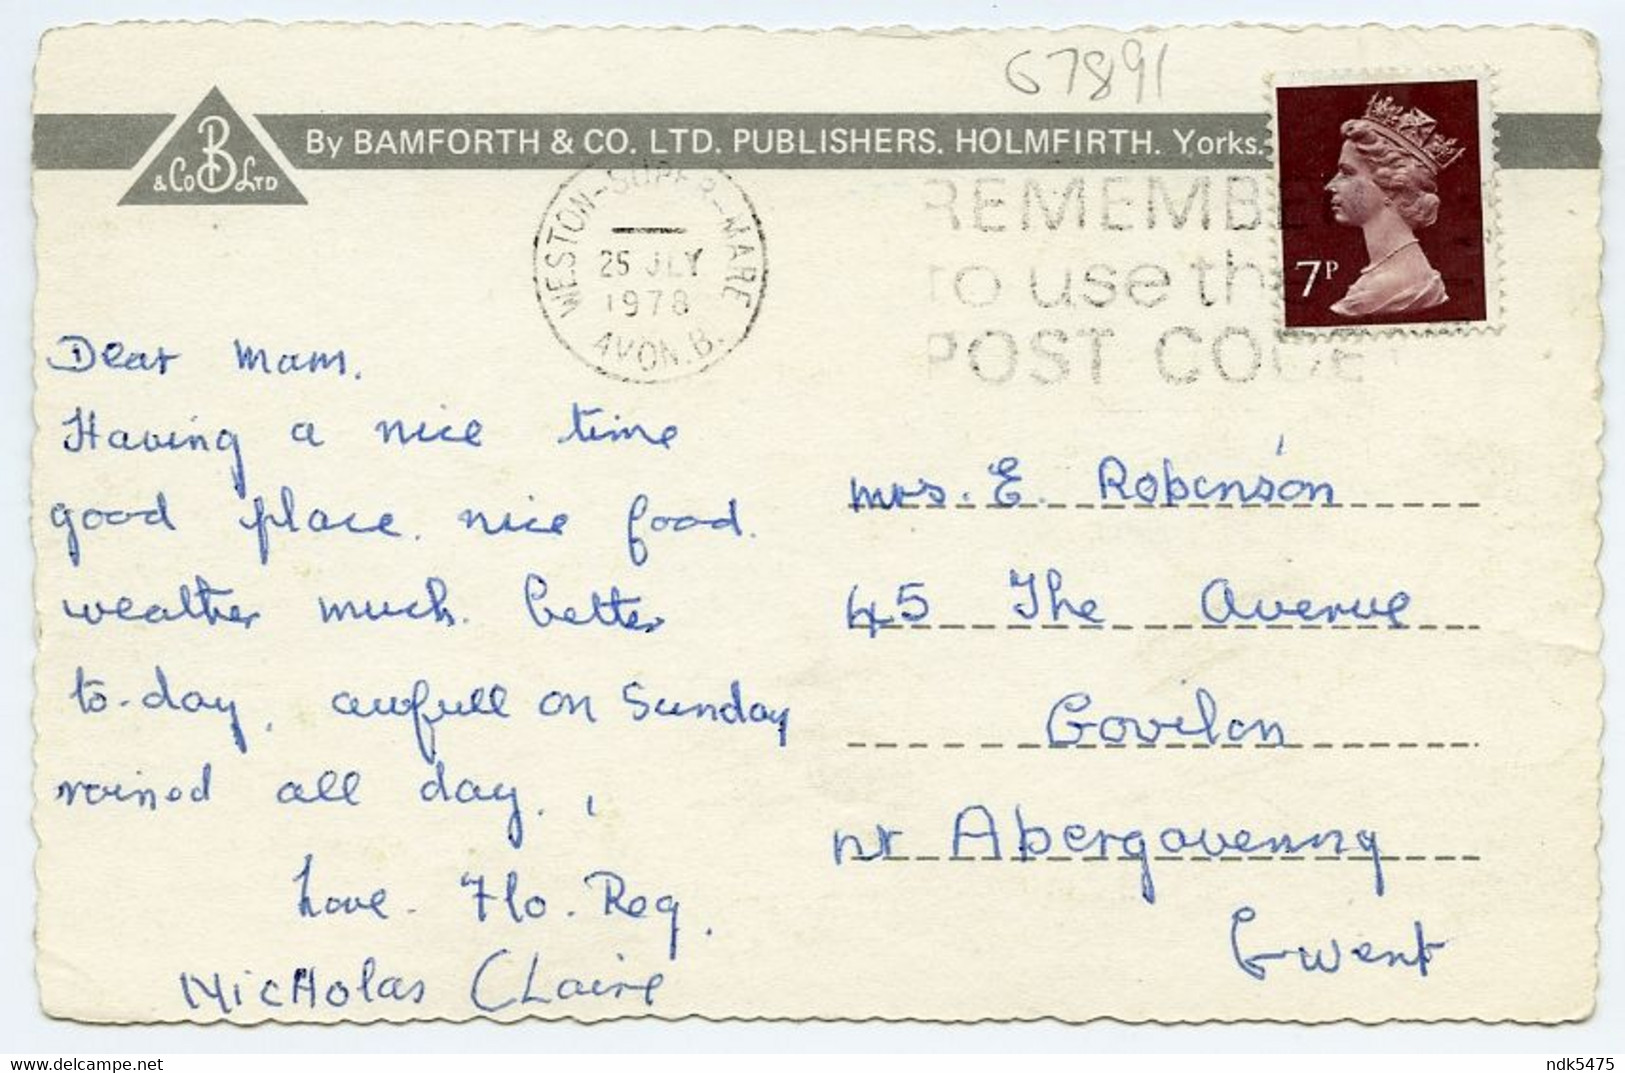 67891
B
& Co LTD
By BAMFORTH & CO. LTD. PUBLISHERS. HOLMFIRTH. Yorks.
WESTON-SUPER-MARE
25 JLY
1978
AVON. B.
REMEMBE
to use th
POST CODE
7P
Dear Mam.
Having a nice time
good place. nice food.
weather much. better
to-day, awfull on Sunday
rained all day.
Love. Flo. Reg.
Nicholas Claire
Mrs. E. Robinson
45 The Avenue
Govilon
nr Abergavenny
Gwent
ndk5475